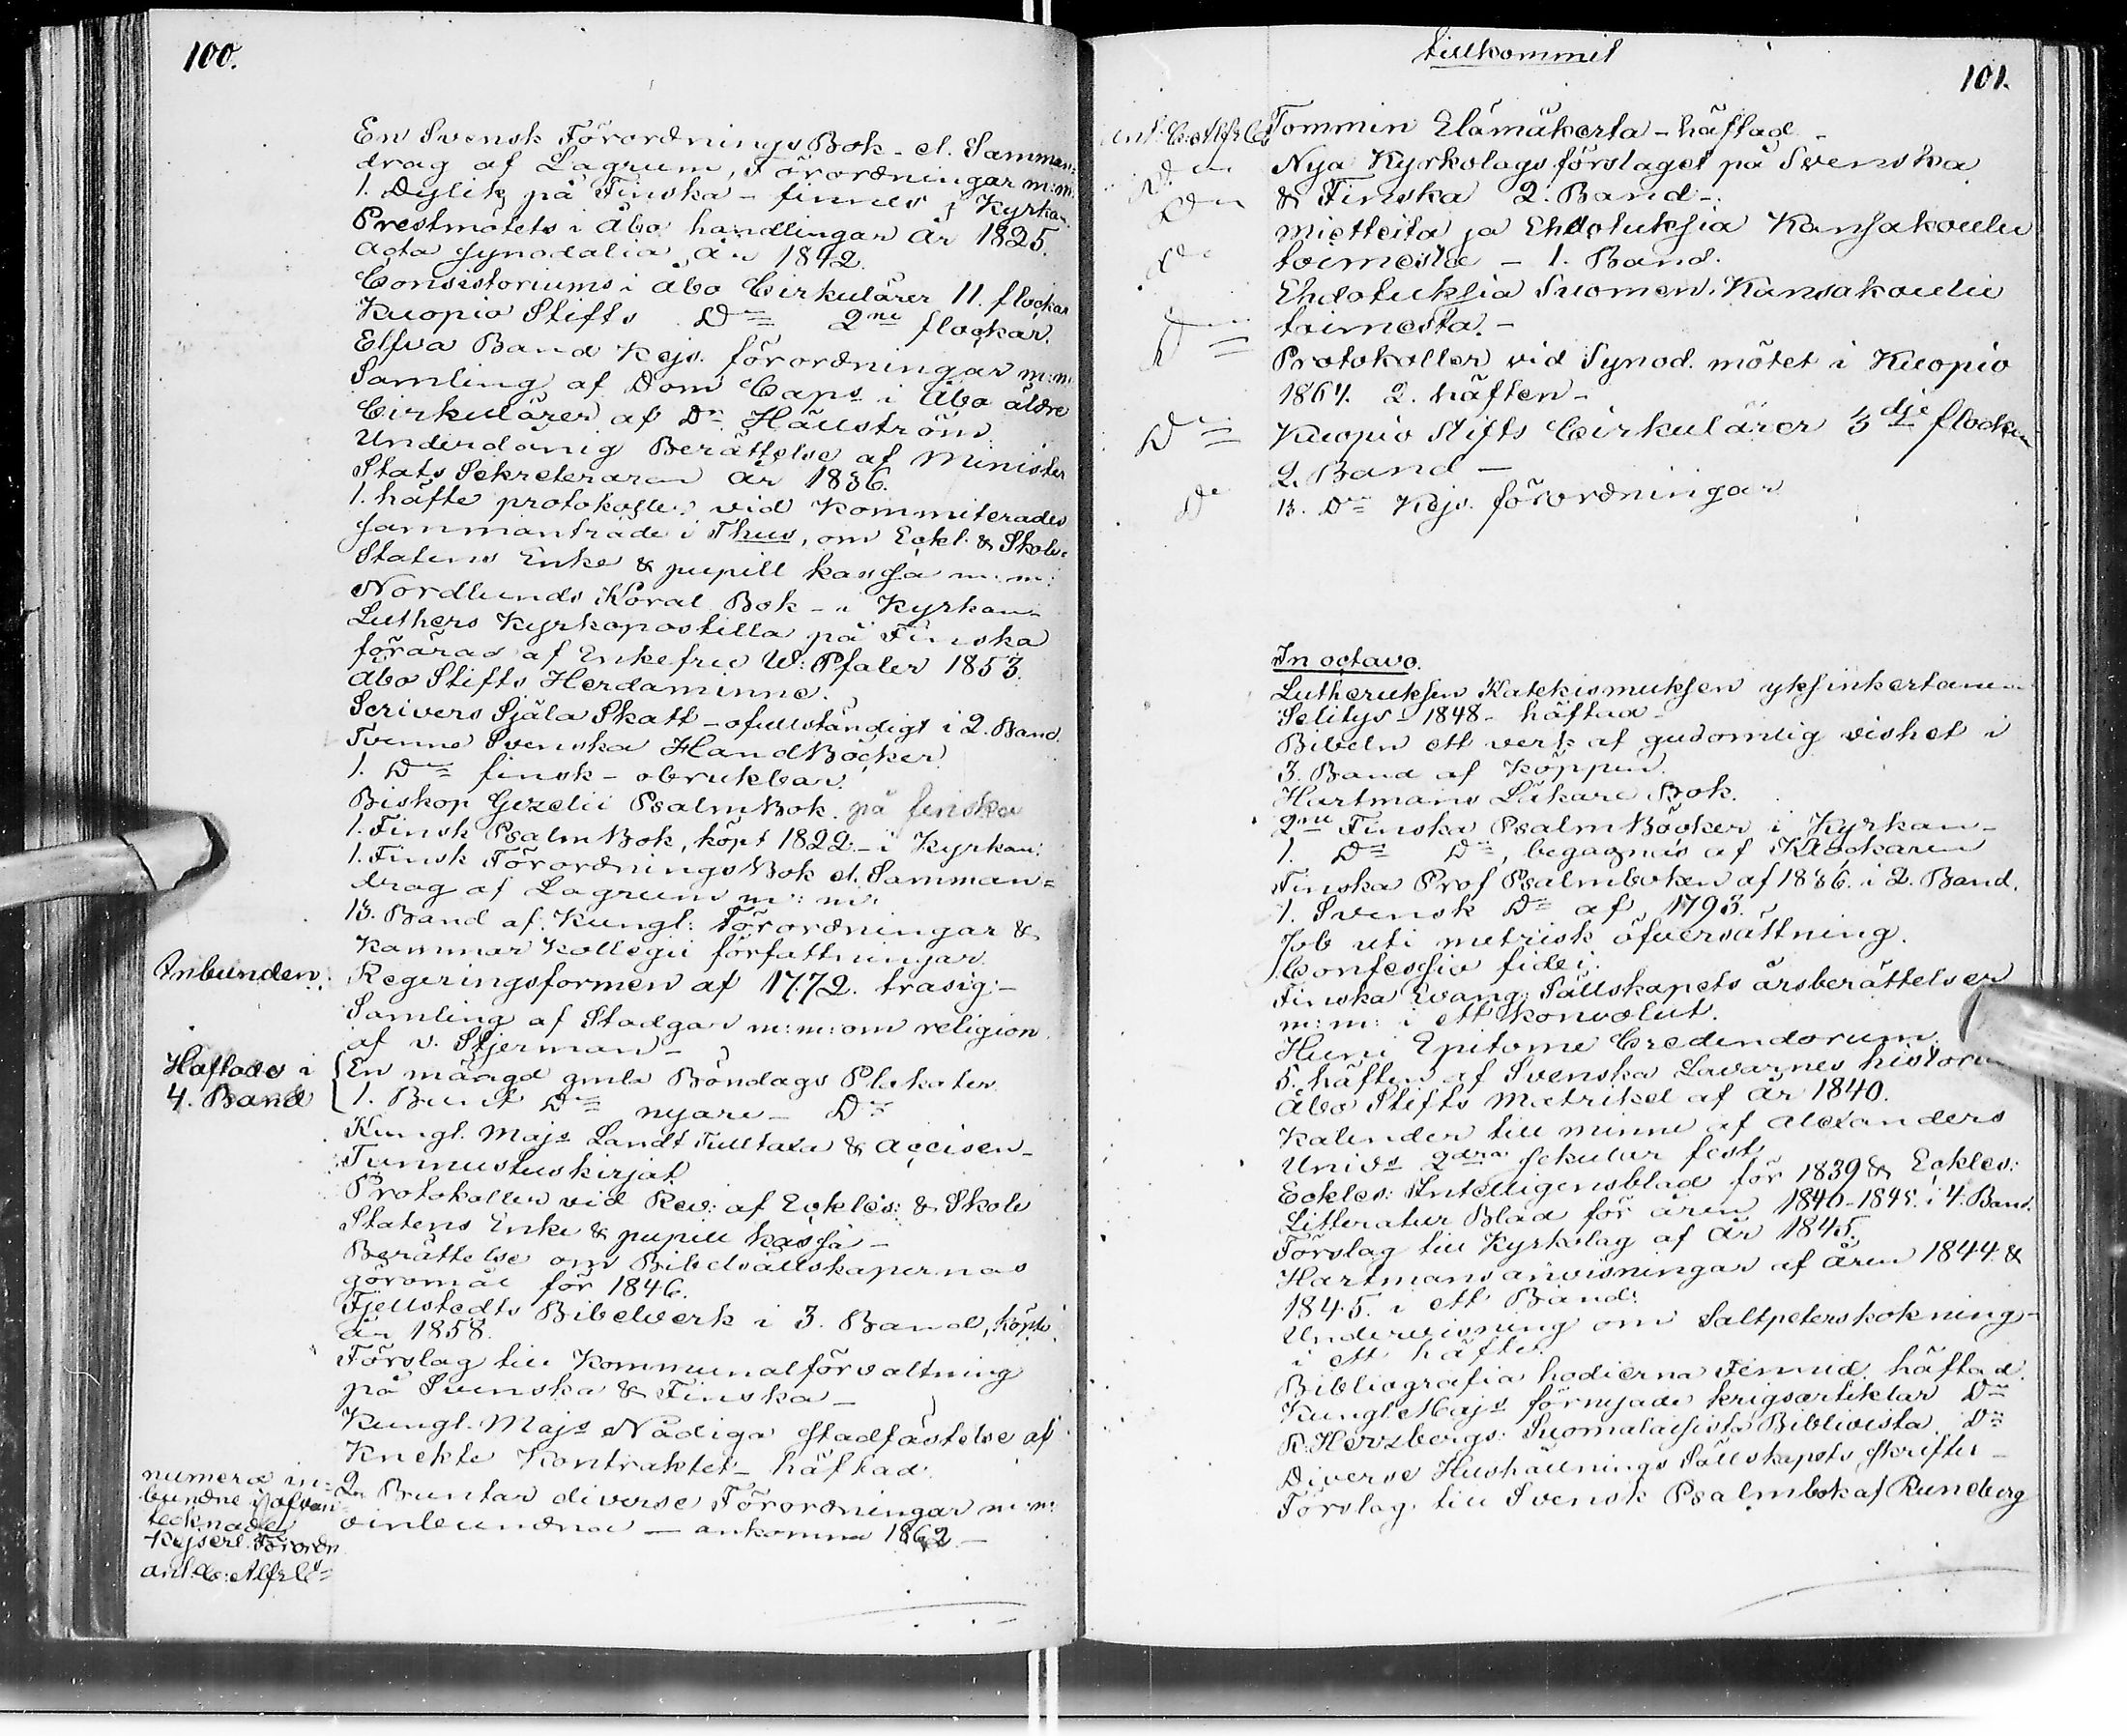 100.
En Svensk FörordningsBok el. Samman-
drag af Lagrum, Förordningar m:m:
1. Dylik på Finska - finnes i Kyrkan
Prestmötets i Åbo handlingar År 1825.
Acta Synodalia År 1842.
Consistoriums i Åbo Cirkulärer 11. flockar
Kuopio Stifts Do 2ne flockar.
Elfva Band Kejs. förordningar m:m:
Samling af Dom Caps i Åbo äldre
Cirkulärer af Dr Hällström
Underdånig Berättelse af Minister
Stats Sekreteraren År 1836.
1. häfte protokoller vid Kommiterades
sammanträde i Thus, om Eckl. & Skole
Statens Enke & pupill kassa m:m:
Nordlunds Koral Bok - i Kyrkan -
Luthers Kyrkopostilla på Finska
förärad af Enkefru W: Pfaler 1853.
Åbo Stifts Herdaminne.
Scrivers Själa Skatt - ofullständigt i 2. Band.
Tvenne Svenska HandBöcker
1. Do finsk - obrukbar.
Biskop Gezelii PsalmBok. på finska
1. Finsk PsalmBok, köpt 1822 - i Kyrkan:
1. Finsk FörordningsBok el. Samman=
drag af Lagrum m: m:
13. Band af Kungl: Förordningar &
Kammar Kollegii författningar.
Inbunden. Regeringsformen af 1772. trasig: -
Samling af Stadgar m:m: om religion
af v. Stjerman -
Häftade i En mängd gmla Böndags Plakater
4. Band 1. Bunt Do nyare - Do
Kungl. Majs Landt Tulltaxa & accisen -
Tunnustuskirjat
Protokoller vid Rev: af Eckles: & Skole
Statens Enke & pupill kassa -
Berättelse om Bibelsällskapernas
göromål för 1846.
Fjellstedts Bibelverk i 3. Band, köpt
år 1858.
Förslag till Kommunalförvaltning
på Svenska & Finska -
Kungl. Majs Nådiga stadfästelse af
Knekte Kontraktet - häftad.
numera in= 2. Buntar diverse Förordningar m:m:
bundne i ofvan= oinbundna - ankomna 1862 -
tecknade
Kejserl. Förordn
ant.
tillkommit
101.
Tommin Elämäkerta - häftad -
Do Nya Kyrkolags förslaget på Svenska
Do & Finska 2. Band -
Mietteitä ja Ehdotuksia Kansakoulu
Do toimesta - 1. Band.
Ehdotuksia Suomen Kansakoulu
toimesta. -
Do Protokoller vid Synod. mötet i Kuopio
1864. 2. häften -
Do Kuopio Stifts Cirkulärer 3dje flocken
2. Band -
Do 13. Do Kejs. förordningar
In octavo.
Lutheruksen Katekismuksen yksinkertanen
Selitys - 1848 - häftad -
Bibeln ett verk af gudomlig vishet i
3. Band af Köppen.
Hartmans Läkare Bok.
2ne Finska PsalmBöcker i Kyrkan -
1. Do Do, begagnas af Klockaren
Finska Prof Psalmboken af 1836. i 2. Band.
1. Svensk Do af 1793.
Job uti metrisk öfversättning.
Confessio fidei.
Finska Evang: Sällskapets årsberättelser
m:m: i ett konvolut.
Epitome Credendorum.
5. häften af Svenska historia
Åbo Stifts Matrikel af År 1840.
Kalender till minne af Alexanders
Univs 2dra sekular fest
Eckles: Intelligensblad för 1839 & Eckles:
Litteratur Blad för åren 1840-1845. i 4. Band.
Förslag till Kyrkolag af År 1845.
Hartmans anvisningar af Åren 1844. &
1845. i ett Band.
Undervisning om Saltpeterskokning -
i ett häfte
Bibliografia hodierna Fennica häftad.
Kungl. Majs förnyade krigsartiklar Do
K. Herzbergs: Suomalaisista Bibliuista Do
Diverse Hushållnings Sällskapets skrifter -
Förslag till Svensk Psalmbok af Runeberg